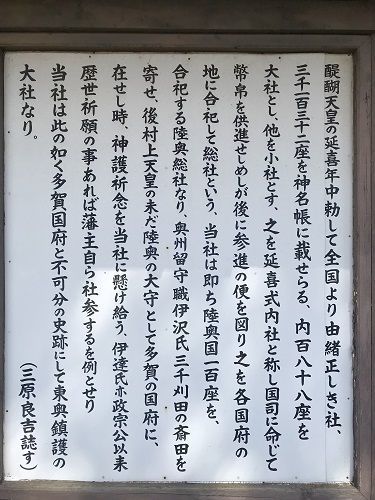 醍醐天皇の延喜年中勅して全国より由緒正しき社、
三千一百三十二座を神名帳に載せらる、内百八十八座を
大社とし、他を小社とす、之を延喜式内社と称し国司に命じて
幣帛を供進せしめしが後に参進の便を図り之を各国府の
地に合祀して総社という、当社は即ち陸奥国一百座を、
合祀する陸奥総社なり、奥州留守職伊沢氏三千刈田の斎田を
寄せ、後村上天皇の未だ陸奥の大守として多賀の国府に、
在せし時、神護祈念を当社に懸け給う、伊達氏亦政宗公以来
歴世祈願の事あれば藩主自ら社参するを例とせり
当社は此の如く多賀国府と不可分の史跡にして東奥鎮護の
大社なり。
(三原良吉誌す)